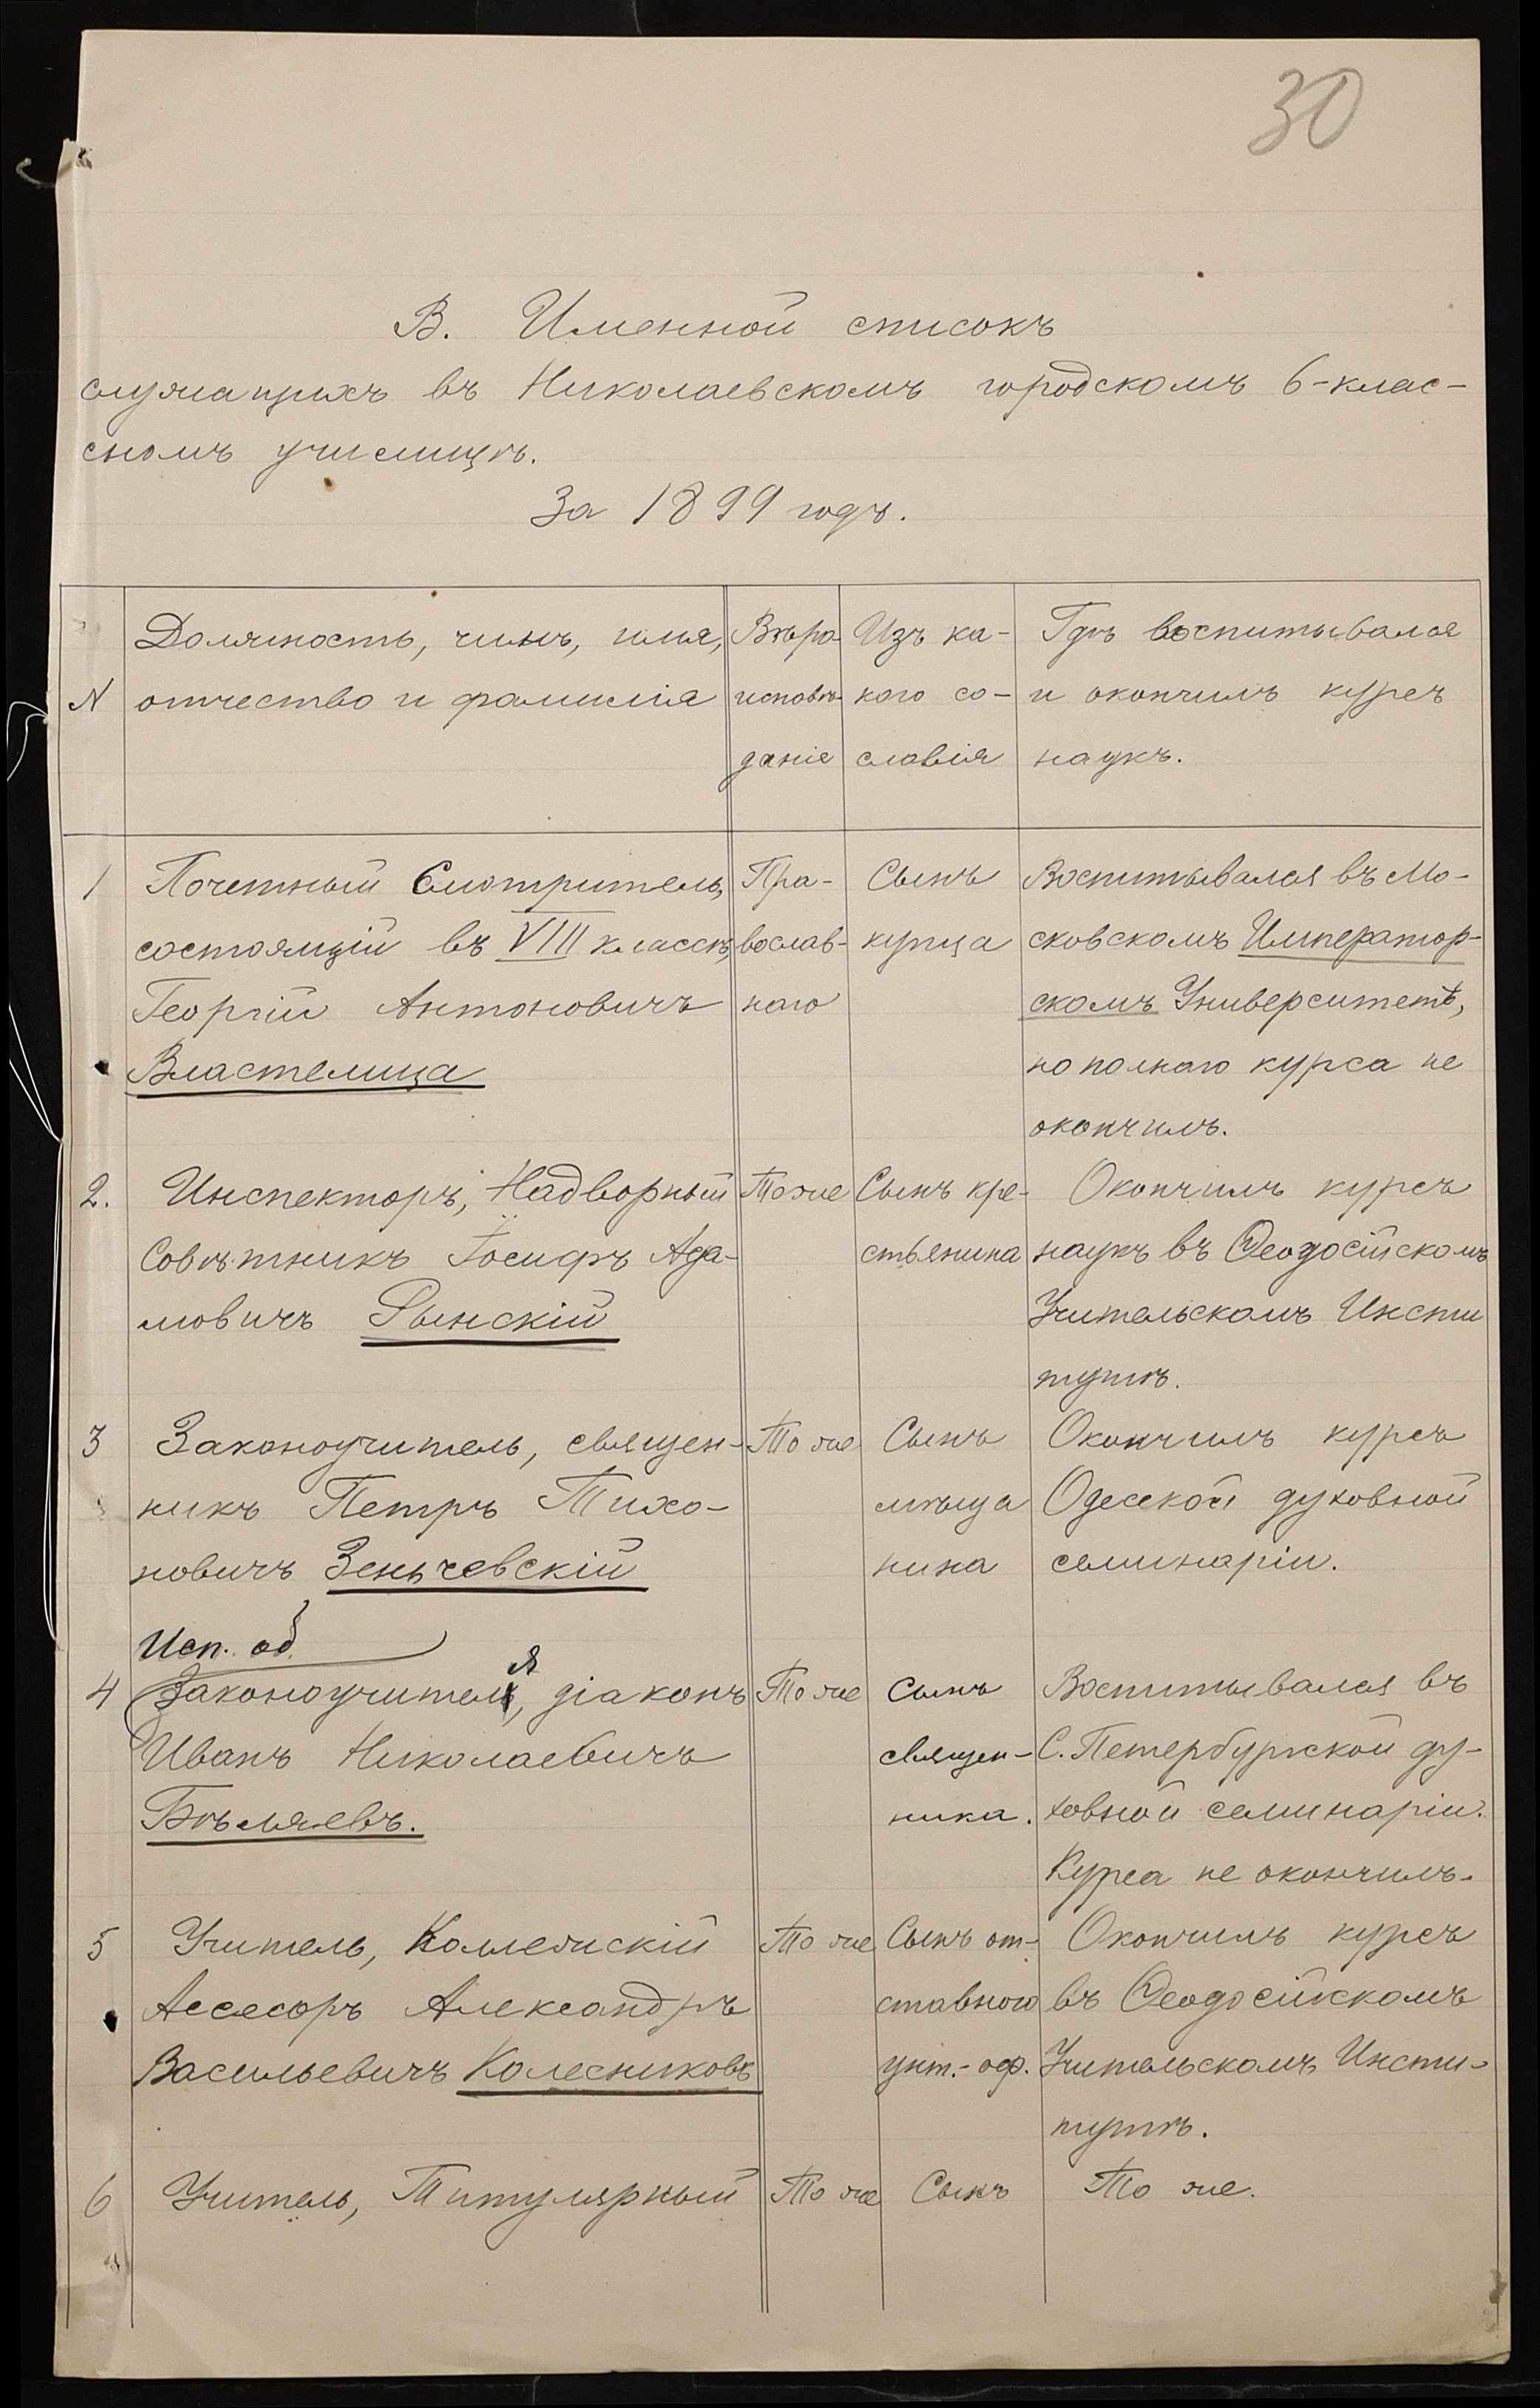 30
В. Именной списокъ
служащихъ въ Николаевскомъ городскомъ 6-клас-
сномъ училищѣ.
За 1899 годъ.
N
Должность, чинъ, имя,
отчество и фамилія
Вѣро-
исповѣ-
даніе
Изъ ка-
кого со-
словія
Гдѣ воспитывался
и окончилъ курсъ
наукъ.
1
Почетный Смотритель,
состоящій въ VIII классѣ,
Георгій Антоновичъ
Властелица
Пра-
вослав-
наго
Сынъ
купца
Воспитывался въ Мо-
сковскомъ Император-
скомъ Университетѣ,
но полнаго курса не
окончилъ.
2.
Инспекторъ, Надворный
Совѣтникъ Іосифъ Ада-
мовичъ Рынскій
То же
Сынъ кре-
стьянина
Окончилъ курсъ
наукъ въ Ѳеодосійскомъ
Учительскомъ Инсти
тутѣ.
3
Законоучитель, священ-
никъ Петръ Тихо-
новичъ Зеньчевскій
То же
Сынъ
мѣща
нина
Окончилъ курсъ
Одесской духовной
семинаріи.
4
Исп. об.
Законоучителя, діаконъ
Иванъ Николаевичъ
Бѣляевъ.
То же
Сынъ
священ-
ника.
Воспитывался въ
С. Петербургской ду-
ховной семинаріи.
Курса не окончилъ.
5
Учитель, Коллежскій
Ассесоръ Александръ
Васильевичъ Колесниковъ
То же
Сынъ от-
ставного
унт.-оф.
Окончилъ курсъ
въ Ѳеодосійскомъ
Учительскомъ Инсти-
тутѣ.
6
Учитель, Титулярный
То же
Сынъ
То же.